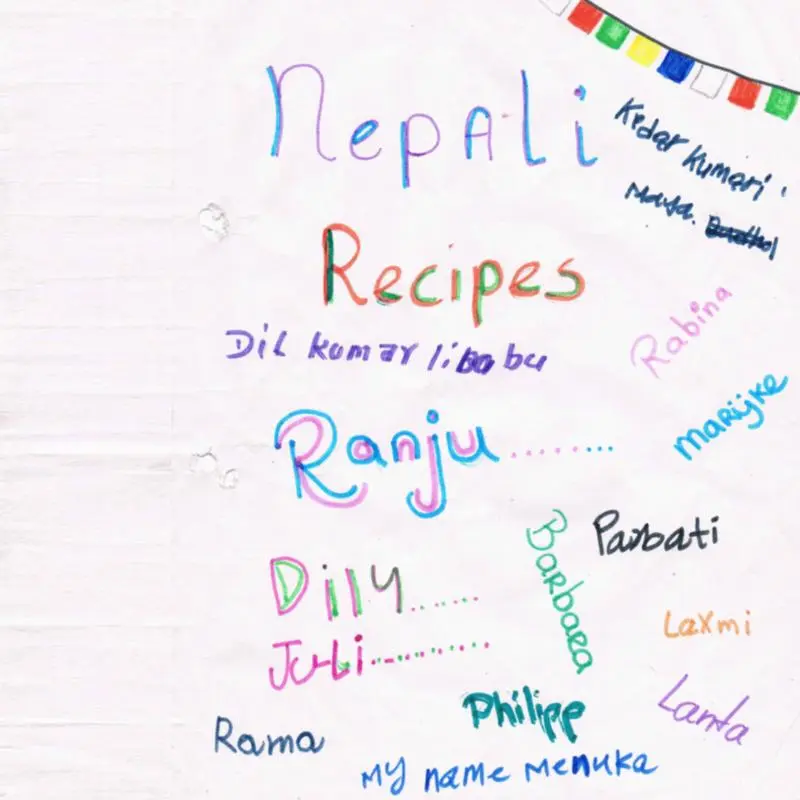 Nepali
Kedar Kumari
Maya.
Recipes
Rabina
Dil kumar libabu
Marijke
Ranju........
Parbati
Barbara
Dily......
Laxmi
Juli..........
Lamta
Philipp
Rama
My name Menuka